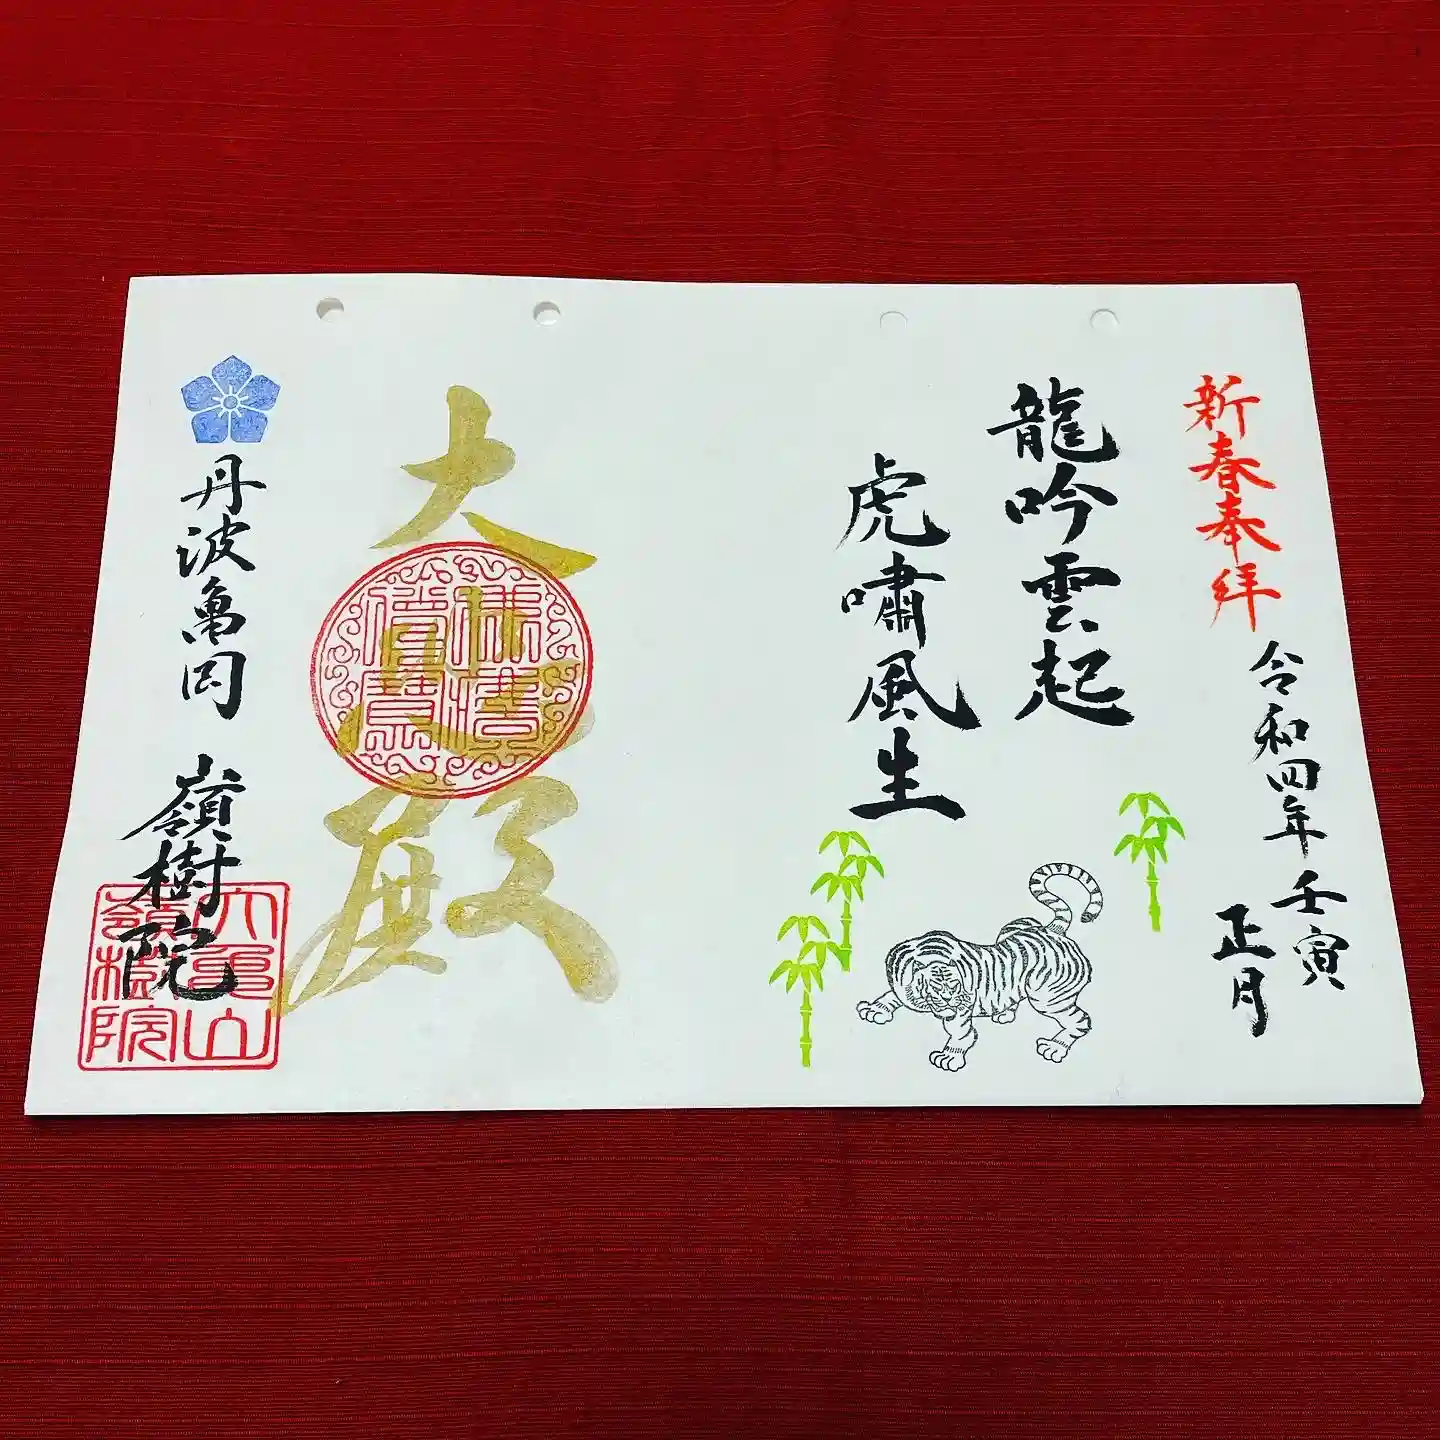 新春奉拝
令和四年 壬寅
正月
龍吟雲起
虎嘯風生
大悲殿
丹波亀岡 嶺樹院
大亀山
嶺樹院